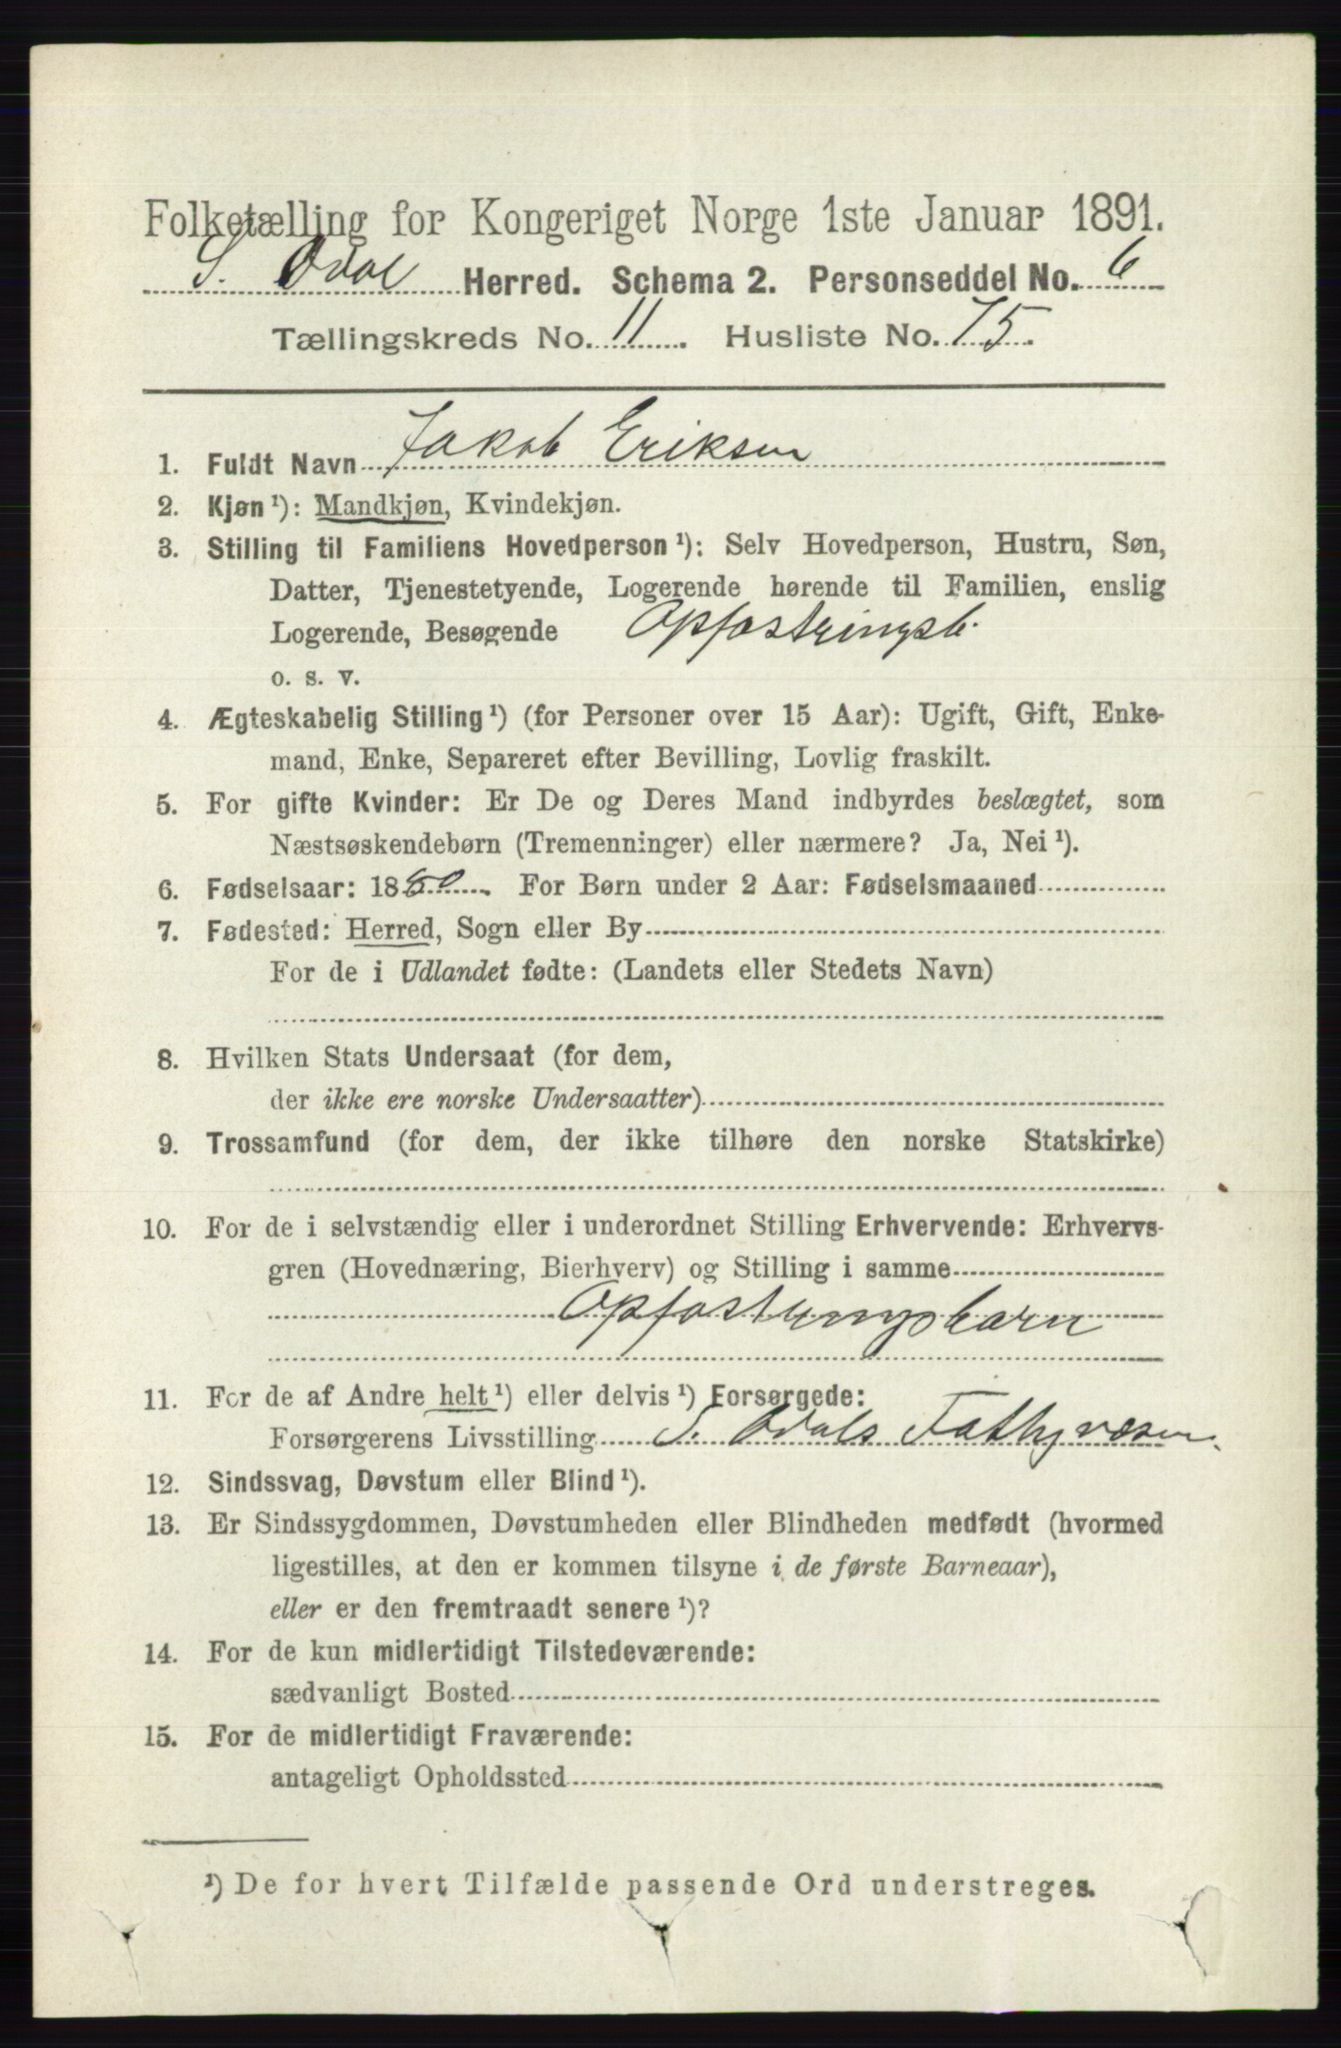 Folketælling for Kongeriget Norge 1ste Januar 1891.
S. Odal Herred. Schema 2. Personseddel No. 6
Tællingskreds No. 11. Husliste No. 75.
1. Fuldt Navn Jakob Eriksen
2. Kjøn ¹): Mandkjøn, Kvindekjøn.
3. Stilling til Familiens Hovedperson ¹): Selv Hovedperson, Hustru, Søn,
Datter, Tjenestetyende, Logerende hørende til Familien, enslig
Logerende, Besøgende Opfostringsb.
o. s. v.
4. Ægteskabelig Stilling ¹) (for Personer over 15 Aar): Ugift, Gift, Enke-
mand, Enke, Separeret efter Bevilling, Lovlig fraskilt.
5. For gifte Kvinder: Er De og Deres Mand indbyrdes beslægtet, som
Næstsøskendebørn (Tremenninger) eller nærmere? Ja, Nei ¹).
6. Fødselsaar: 1880. For Børn under 2 Aar: Fødselsmaaned
7. Fødested: Herred, Sogn eller By
For de i Udlandet fødte: (Landets eller Stedets Navn)
8. Hvilken Stats Undersaat (for dem,
der ikke ere norske Undersaatter)
9. Trossamfund (for dem, der ikke tilhøre den norske Statskirke)
10. For de i selvstændig eller i underordnet Stilling Erhvervende: Erhvervs-
gren (Hovednæring, Bierhverv) og Stilling i samme
Opfostringsbarn
11. For de af Andre helt ¹) eller delvis ¹) Forsørgede:
Forsørgerens Livsstilling S. Odals Fattigvæsen.
12. Sindssvag, Døvstum eller Blind ¹).
13. Er Sindssygdommen, Døvstumheden eller Blindheden medfødt (hvormed
ligestilles, at den er kommen tilsyne i de første Barneaar),
eller er den fremtraadt senere ¹)?
14. For de kun midlertidigt Tilstedeværende:
sædvanligt Bosted
15. For de midlertidigt Fraværende:
antageligt Opholdssted
¹) De for hvert Tilfælde passende Ord understreges.